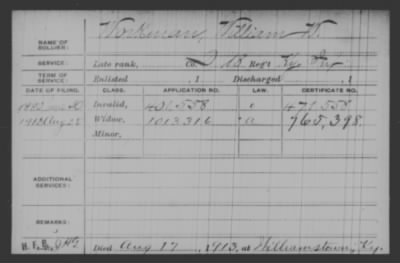 NAME OF SOLDIER: Workman, William W.
SERVICE: Late rank, Co. D, 13 Reg't Ky. Inf.
TERM OF SERVICE: Enlisted , 1 Discharged , 1
DATE OF FILING. CLASS. APPLICATION NO. LAW. CERTIFICATE NO.
1882 Invalid, 431.558 471.558
Widow, 1013316 a 765,398.
Minor,
ADDITIONAL SERVICES:
REMARKS:
Died Aug 17, 1913, at Williamstown, Ky.